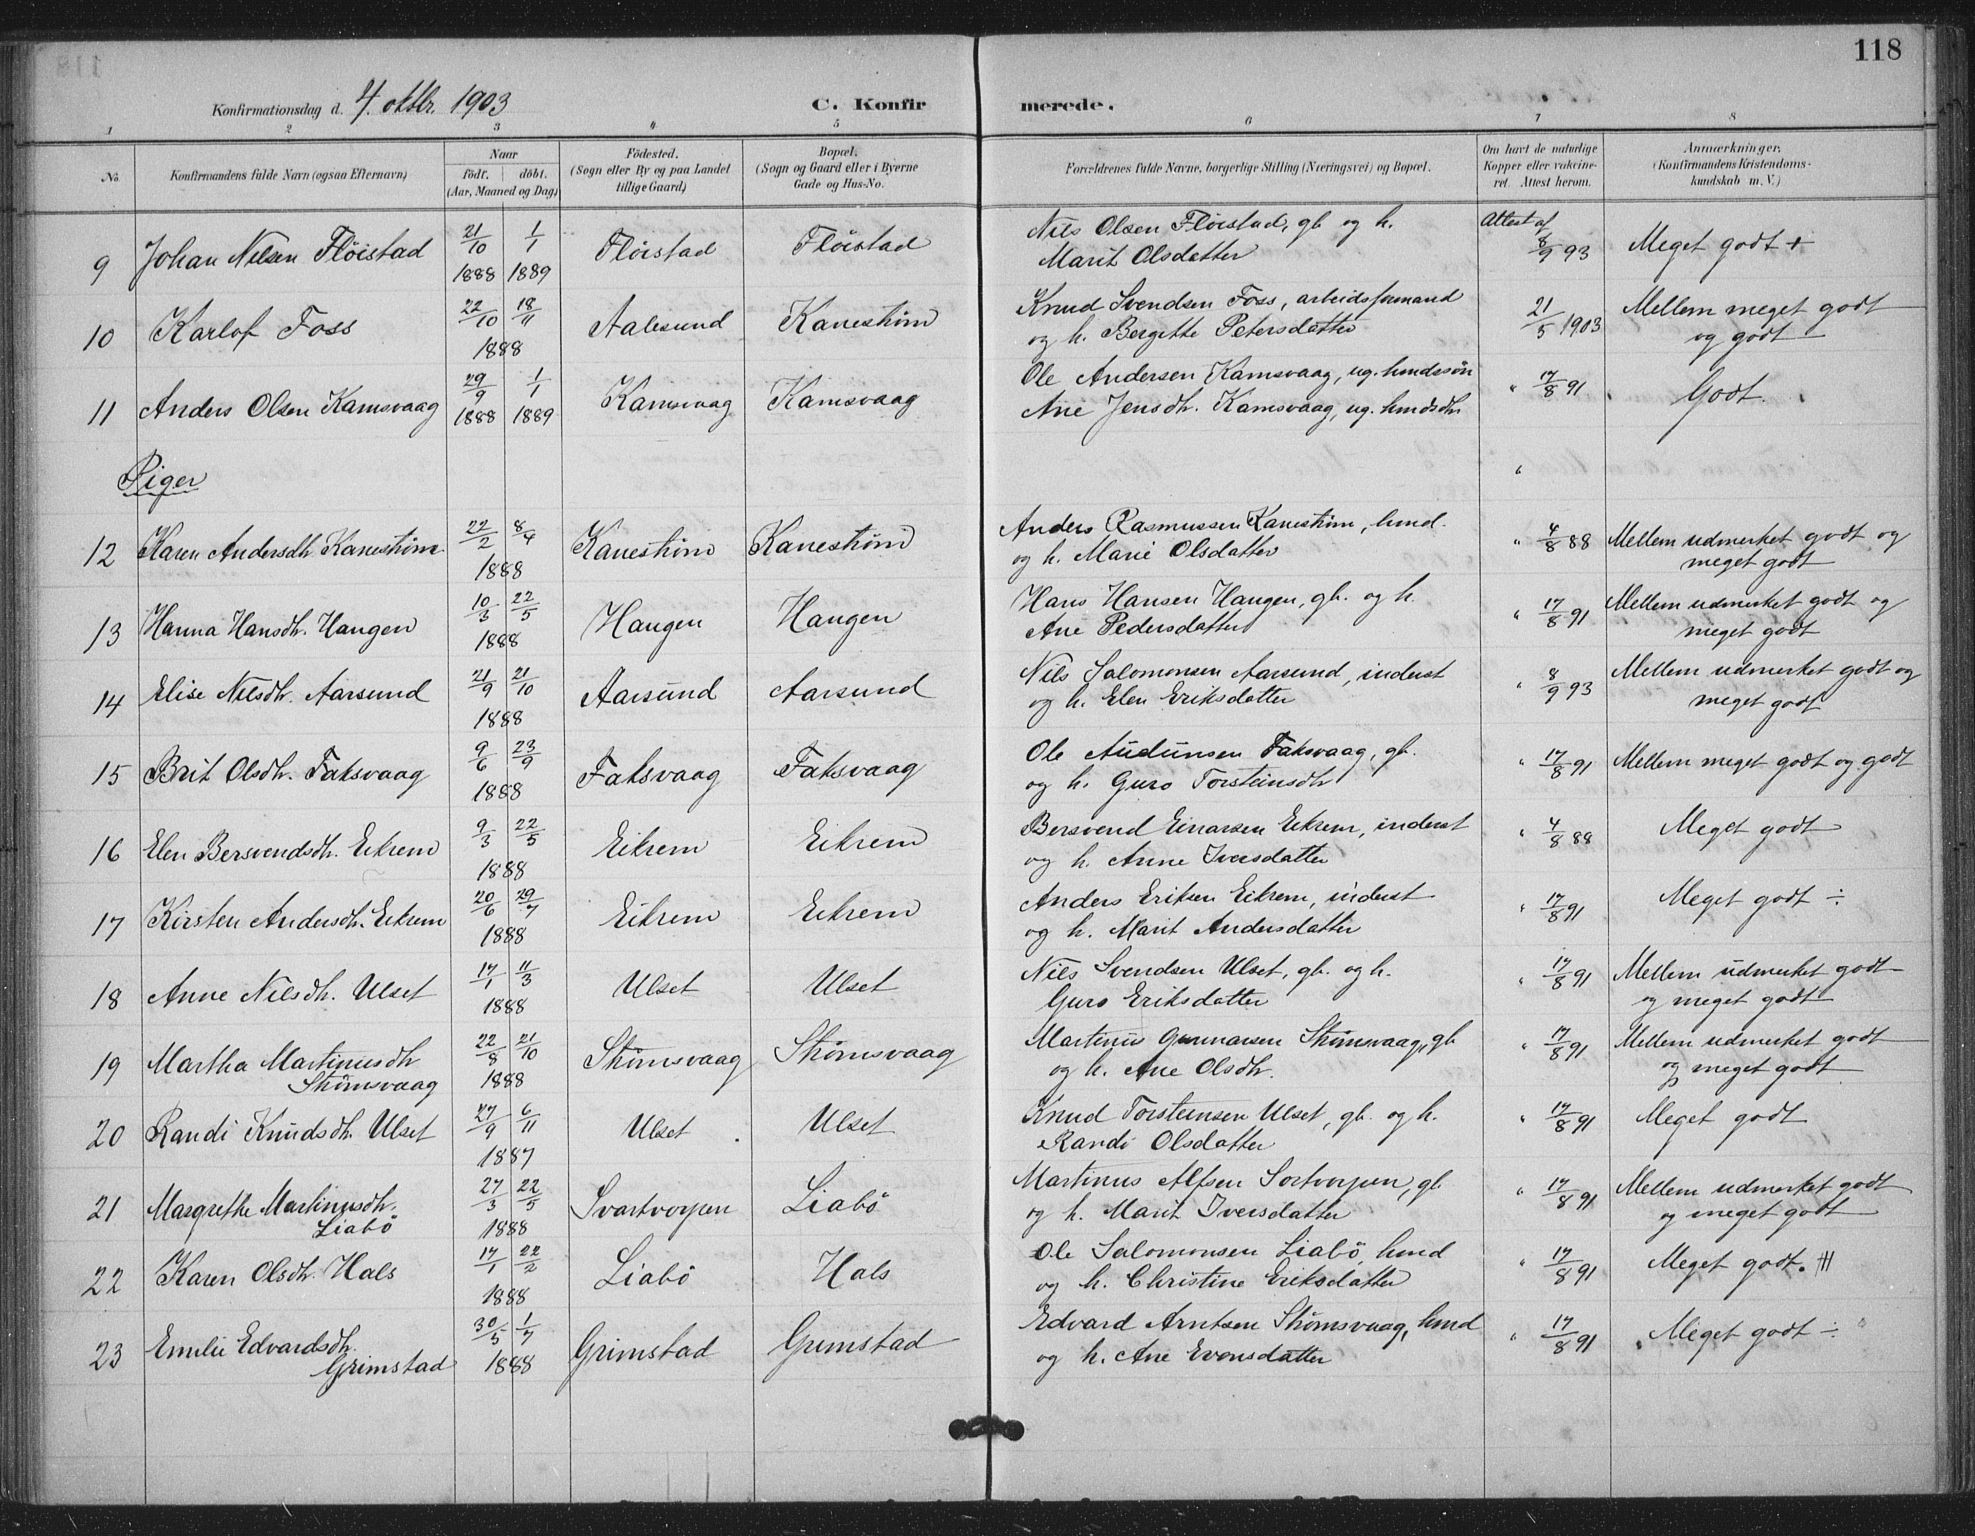 118
Konfirmationsdag d. 4. oktbr. 1903
C. Konfirmerede.
1 2 3 4 5 6 7 8
No.
Konfirmandens fulde Navn (ogsaa Efternavn)
Naar
födt. döbt.
(Aar, Maaned og Dag)
Födested.
(Sogn eller By og paa Landet
tillige Gaard)
Bopæl.
(Sogn og Gaard eller i Byerne
Gade og Hus-No.
Forældrenes fulde Navne, borgerlige Stilling (Næringsvei) og Bopæl.
Om havt de naturlige
Kopper eller vakcine-
ret. Attest herom.
Anmærkninger.
(Konfirmandens Kristendoms-
kundskab m. V.)
9 Johan Nilsen Fløistad 21/10 1888 1/1 1889 Fløistad Fløistad Nils Olsen Fløistad, gb. og h.
Marit Olsdatter Attest af 8/9 93 Meget godt +
10 Karlof Foss 22/10 18/11 1888 Aalesund Kanestrøm Knud Svendsen Foss, arbeidsformand
og h. Bergitte Petersdatter 21/5 1903 Mellem meget godt
og godt
11 Anders Olsen Kamsvaag 29/9 1888 1/1 1889 Kamsvaag Kamsvaag Ole Andersen Kamsvaag, ug. hmdssøn
Ane Jensdtr. Kamsvaag, ug. hmdsdtr. " 17/8 91 Godt.
Piger "
12 Karen Andersdtr. Kanestrøm 22/2 8/4 1888 Kanestrøm Kanestrøm Anders Rasmussen Kanestrøm, hmd.
og h. Marie Olsdatter " 4/8 88 Mellem udmerket godt og
meget godt
13 Hanna Hansdtr. Haugen 10/3 22/5 1888 Haugen Haugen Hans Hansen Haugen, gb. og h.
Ane Pedersdatter " 17/8 91 Mellem udmerket godt og
meget godt
14 Elise Nilsdtr. Aarsund 21/9 21/10 1888 Aarsund Aarsund Nils Salomonsen Aarsund, inderst
og h. Elen Eriksdatter " 8/9 93 Mellem udmerket godt og
meget godt
15 Brit Olsdtr. Faksvaag 9/6 23/9 1888 Faksvaag Faksvaag Ole Audunsen Faksvaag, gb.
og h. Guro Torsteinsdtr " 17/8 91 Mellem meget godt og godt
16 Elen Bersvendsdtr. Eikrem 9/3 22/5 1888 Eikrem Eikrem Bersvend Einarsen Eikrem, inderst
og h. Anne Iversdatter " 4/8 88 Meget godt
17 Kirsten Andersdtr. Eikrem 20/6 29/7 1888 Eikrem Eikrem Anders Eriksen Eikrem, inderst
og h. Marit Andersdatter " 17/8 91 Meget godt ÷
18 Anne Nilsdtr. Ulset 17/1 11/3 1888 Ulset Ulset Nils Svendsen Ulset, gb. og h.
Guro Eriksdatter " 17/8 91 Mellem udmerket godt
og meget godt
19 Martha Martinusdtr
Strømsvaag 22/8 21/10 1888 Strømsvaag Strømsvaag Martinus Gunnarsen Strømsvaag, gb
og h. Ane Olsdtr. " 17/8 91 Mellem udmerket godt
og meget godt
20 Randi Knudsdtr. Ulset 27/9 6/11 1887 Ulset Ulset Knud Torsteinsen Ulset, gb. og h.
Randi Olsdatter " 17/8 91 Meget godt
21 Margrethe Martinusdtr.
Liabö 27/3 22/5 1888 Svartvorpen Liabö Martinus Alfsen Sortvorpen, gb.
og h. Marit Iversdatter " 17/8 91 Mellem udmerket godt
og meget godt
22 Karen Olsdtr. Hals 17/1 22/2 1888 Liabö Hals Ole Salomonsen Liabö, hmd
og h. Christine Eriksdatter " 17/8 91 Meget godt.
23 Emilie Edvardsdtr.
Grimstad 30/5 1/7 1888 Grimstad Grimstad Edvard Arntsen Strømsvaag, hmd
og h. Ane Evensdatter " 17/8 91 Meget godt ÷